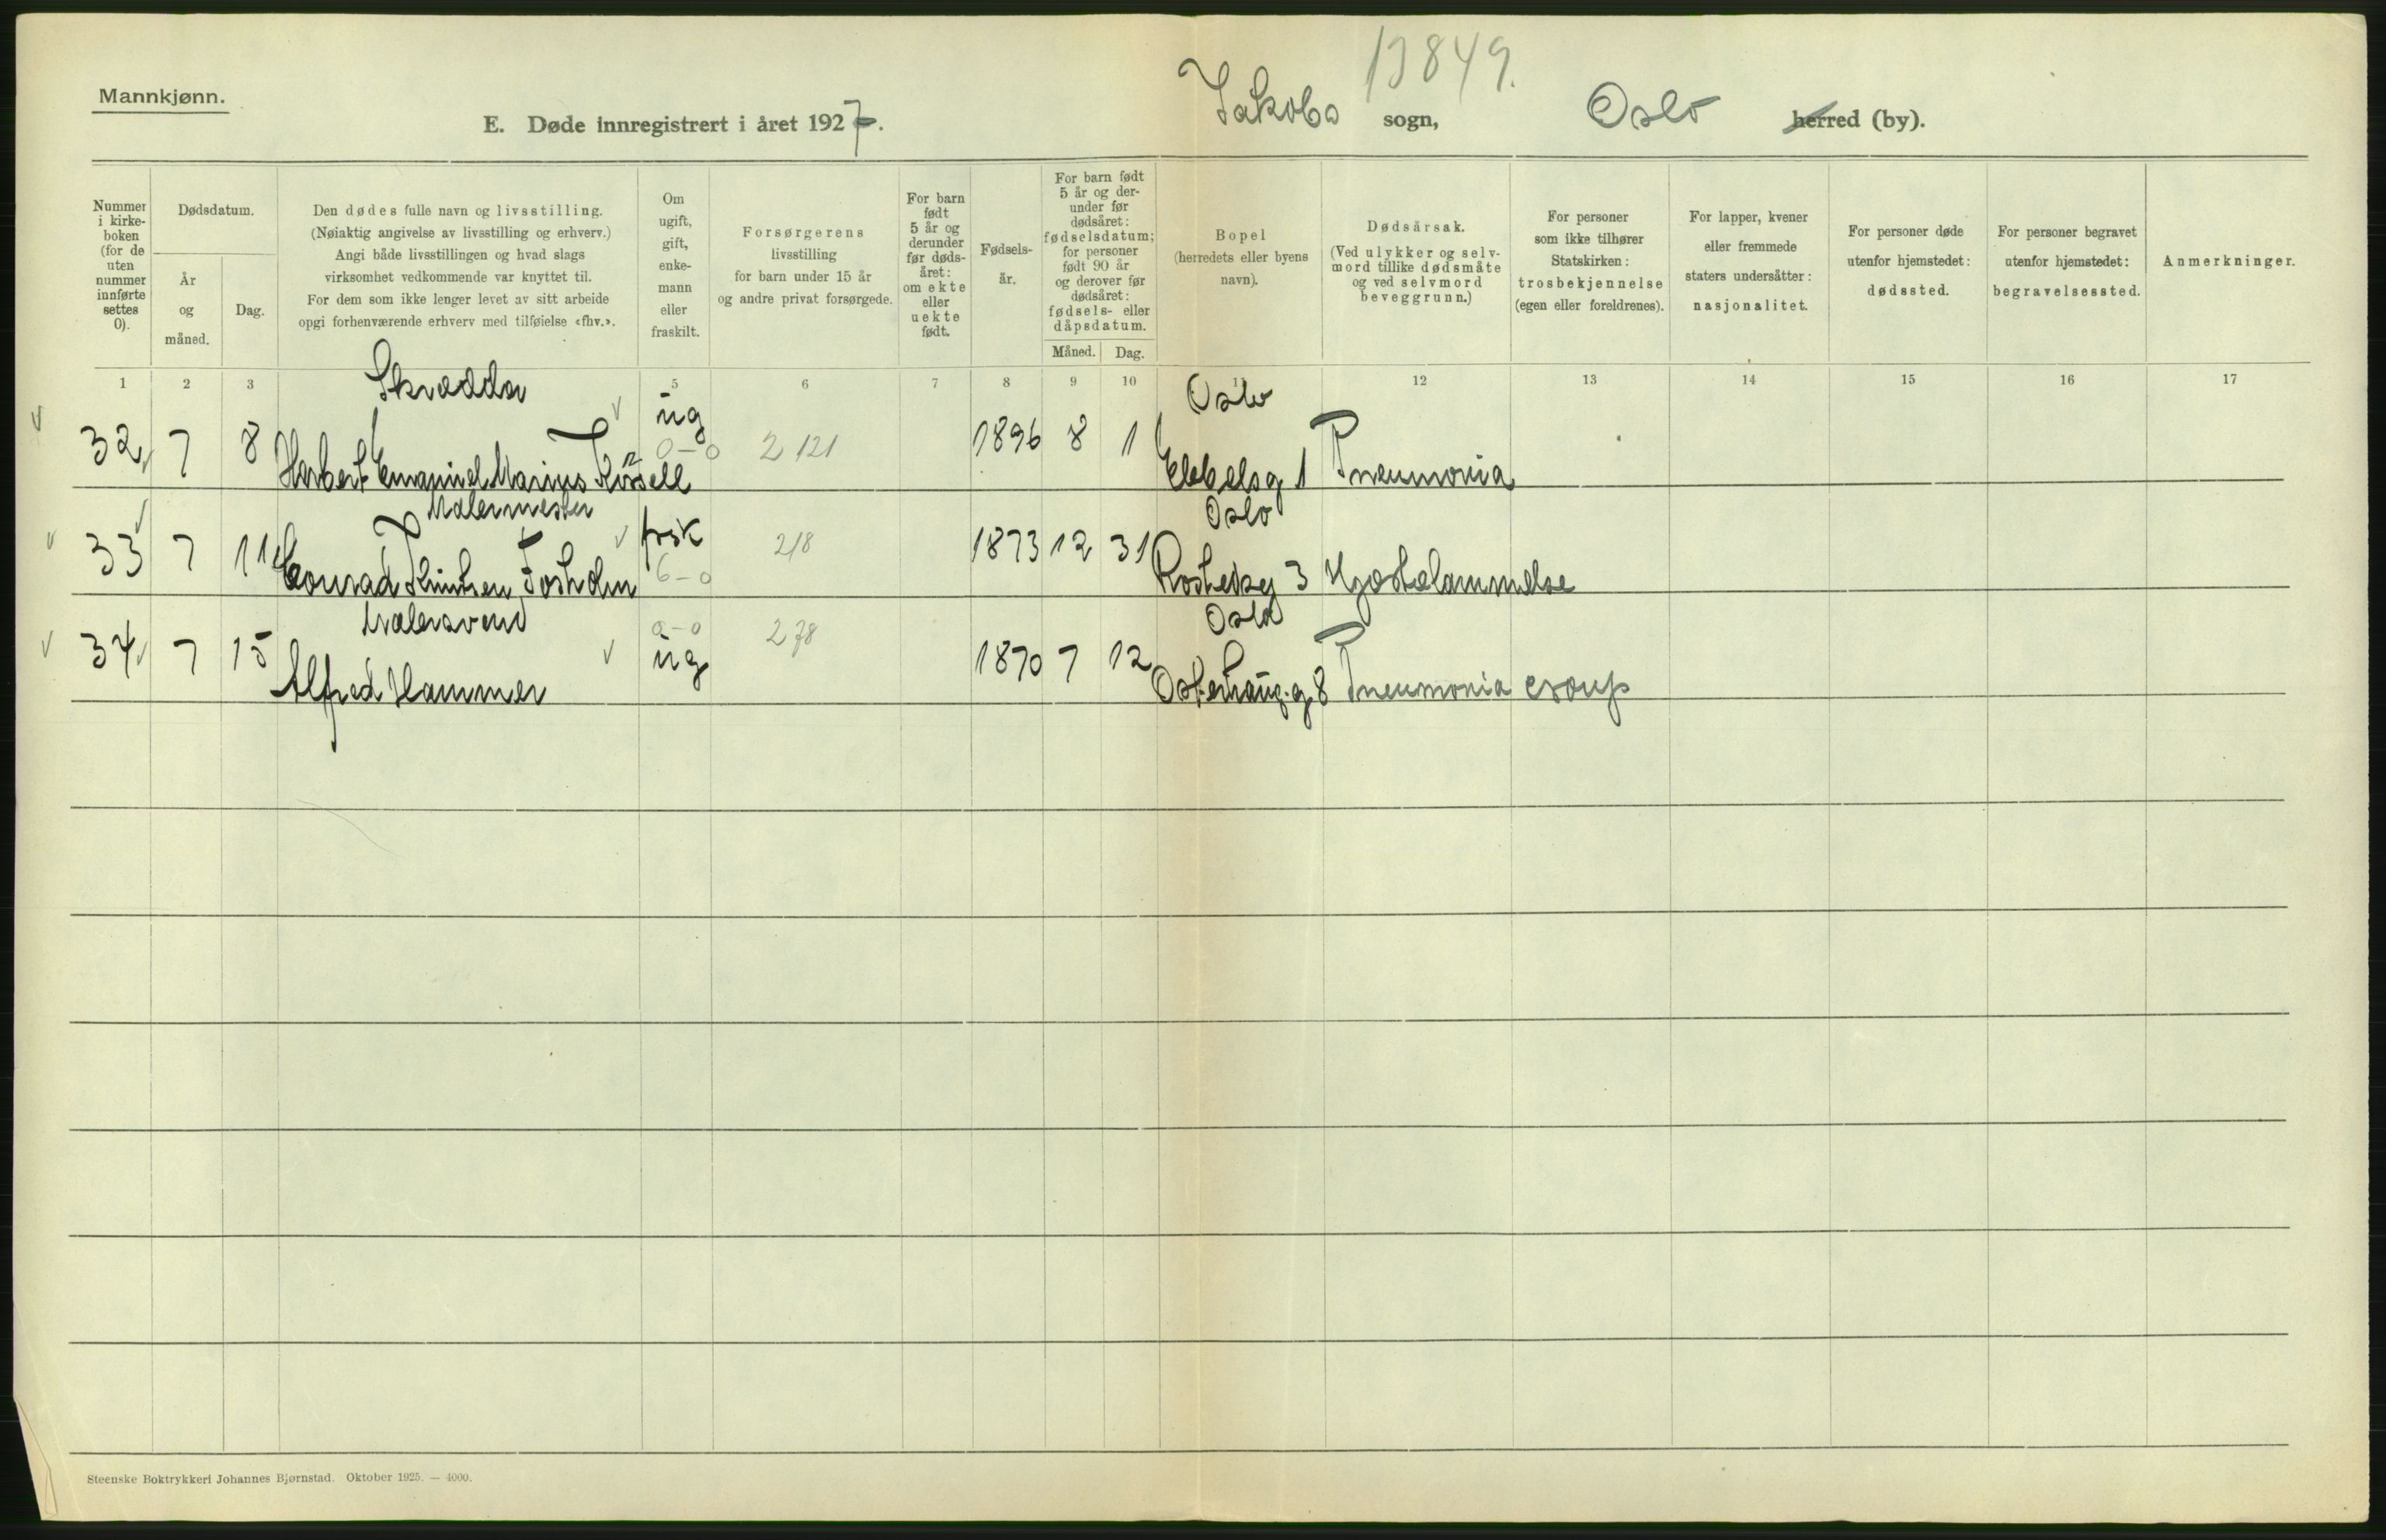 Mannkjønn.
13849.
E. Døde innregistrert i året 1927.
Jakobs sogn, Oslo herred (by).
Nummer i kirke-boken (for de uten nummer innførte settes 0).
Dødsdatum.
År og måned.
Dag.
Den dødes fulle navn og livsstilling.
(Nøiaktig angivelse av livsstilling og erhverv.)
Angi både livsstillingen og hvad slags
virksomhet vedkommende var knyttet til.
For dem som ikke lenger levet av sitt arbeide
opgi forhenværende erhverv med tilføielse «fhv.».
Om ugift, gift, enke-mann eller fraskilt.
Forsørgerens
livsstilling
for barn under 15 år
og andre privat forsørgede.
For barn født 5 år og derunder før døds-året: om ekte eller uekte født.
Fødsels-år.
For barn født 5 år og der-under før dødsåret: fødselsdatum; for personer født 90 år og derover før dødsåret: fødsels- eller dåpsdatum.
Måned. Dag.
Bopel
(herredets eller byens
navn).
Dødsårsak.
(Ved ulykker og selv-
mord tillike dødsmåte
og ved selvmord
beveggrunn.)
For personer
som ikke tilhører
Statskirken:
trosbekjennelse
(egen eller foreldrenes).
For lapper, kvener
eller fremmede
staters undersåtter:
nasjonalitet.
For personer døde
utenfor hjemstedet:
dødssted.
For personer begravet
utenfor hjemstedet:
begravelsessted.
Anmerkninger.
1 2 3 5 6 7 8 9 10 11 12 13 14 15 16 17
Skrædder Oslo
32 7 8 ug 0-0 2121 1896 8 1
Herbert Emanuel Marius Pneumonia
Malermester Oslo
33 7 11 frsk 6-0 218 1873 12 31
Conrad 3 Hjertelammelse
Malersvend Oslo
34 7 15 0-0 ug 278 1870 7 12
Alfred Hammer Osterhaug.g 8 Pneumonia croup
Steenske Boktrykkeri Johannes Bjørnstad. Oktober 1925. — 4000.